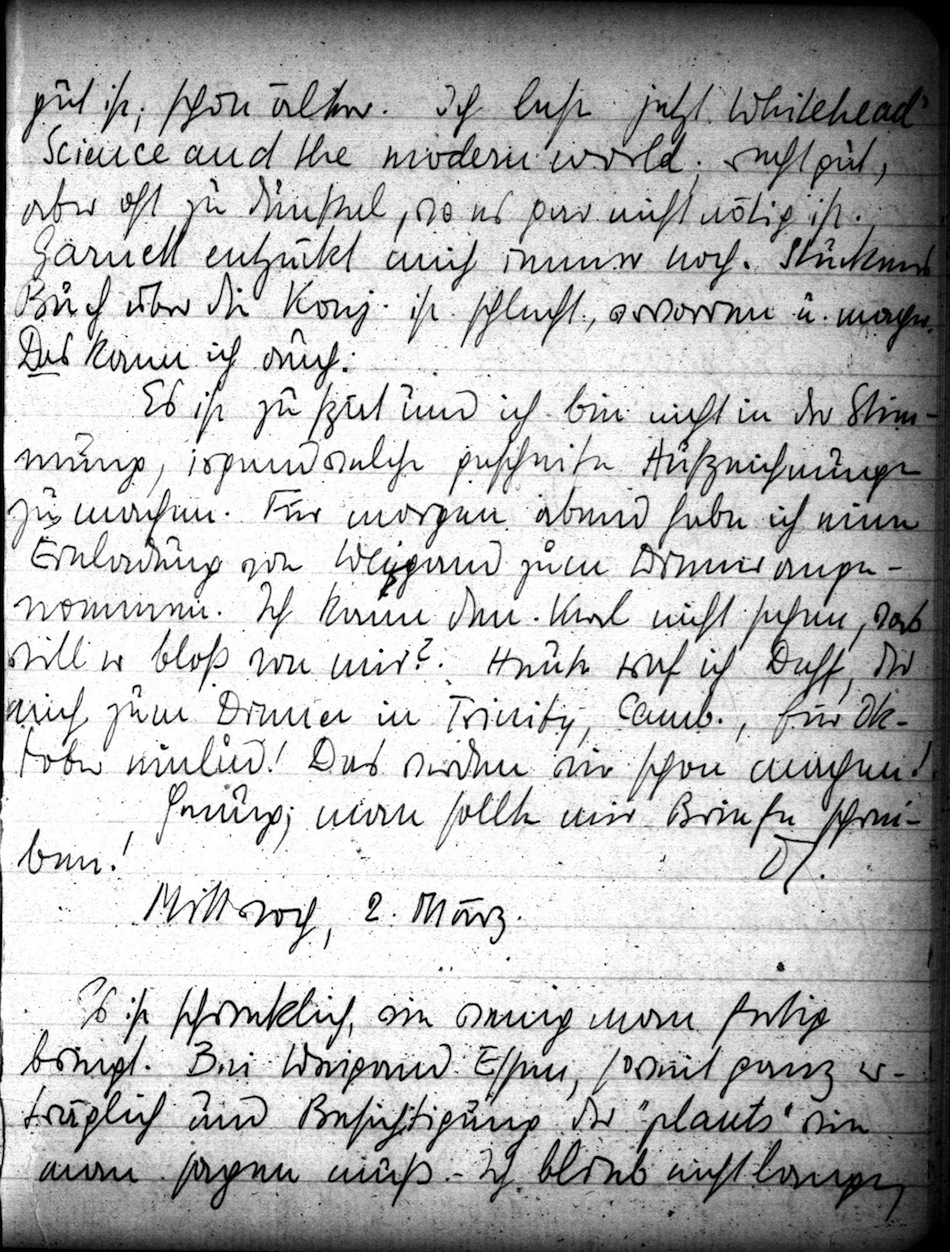 gut ist, schon älter. Ich lese jetzt Whitehead'
Science and the modern world; recht gut,
aber oft zu dunkel, wo es gar nicht nötig ist.
Garnett entzückt mich immer noch. Stückens
Buch über die Konj. ist schlecht, verworren u. mager.
Das kann ich auch.
Es ist zu spät und ich bin nicht in der Stim-
mung, irgendwelche gescheite Aufzeichnungen
zu machen. Für morgen abend habe ich eine
Einladung von Weigand zum Dinner ange-
nommen. Ich kann den Kerl nicht sehen, was
will er bloß von mir? Heute traf ich Duff, der
mich zum Dinner in Trinity, Camb., für Ok-
tober einlud! Das werden wir schon machen!
Genug; man sollte mir Briefe schrei-
ben!
Mittwoch, 2. März.
Es ist schrecklich, wie wenig man fertig
bringt. Bei Weigand Essen, soweit ganz er-
träglich und Besichtigung der "plants" wie
man sagen muß. - Ich blieb nicht lange,